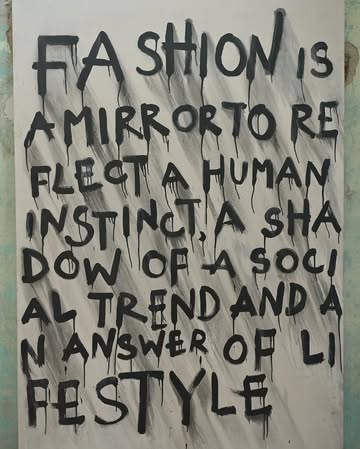 FASHION IS
A MIRROR TO RE
FLECT A HUMAN
INSTINCT, A SHA
DOW OF A SOCI
AL TREND AND A
N ANSWER OF LI
FESTYLE